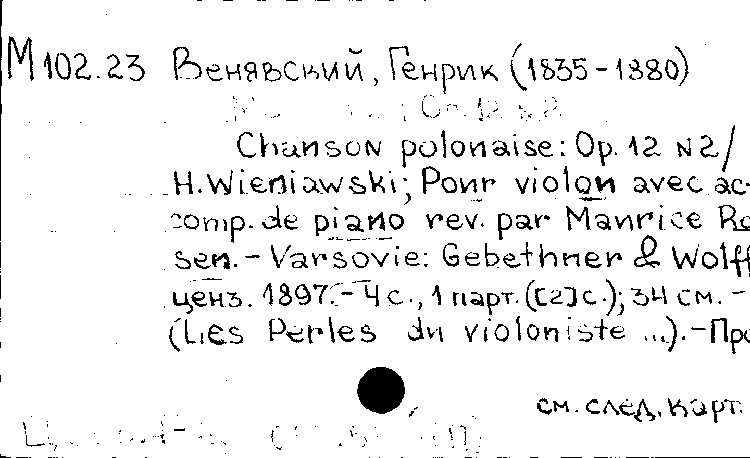 М 102.23 Венявский, Генрик (1835-1880)
Op. 12 № 2
Chanson polonaise: Op. 12 N 2/
H. Wieniawski; Pour violon avec ac-
comp. de piano rev. par Maurice Ro
sen. – Varsovie: Gebethner & Wolff
ценз. 1897. – 4 с., 1 парт. ([2] с.); 34 см. –
(Les Perles du violoniste ...). – Пр
см. след. карт.